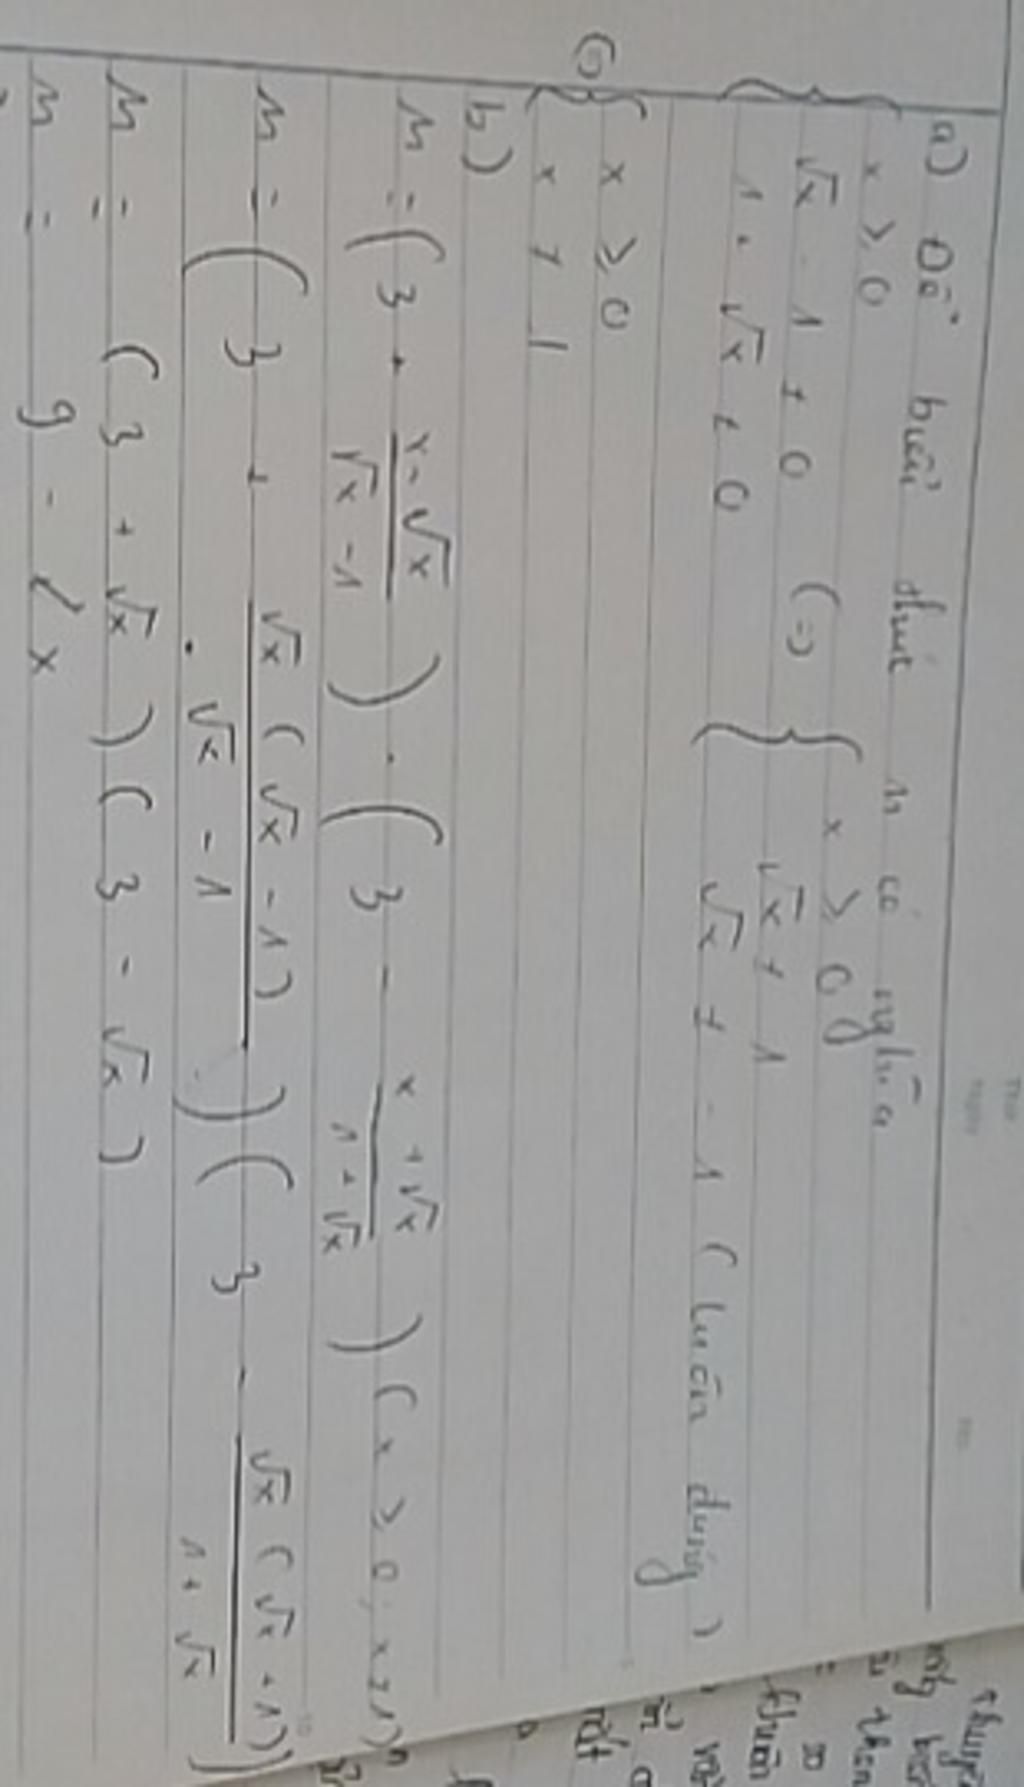 a) Để biểu thức M có nghĩa
{ x ≥ 0
√x - 1 ≠ 0 (=) { x ≥ 0
√x ≠ 1
1 + √x ≠ 0
√x ≠ -1 (luôn đúng)
(=) { x ≥ 0
x ≠ 1
b)
M = (3 + x-√x / √x -1) . (3 - x + √x / 1 + √x) (x ≥ 0; x≠1)
M = (3 + √x (√x -1) / √x - 1) (3 - √x (√x +1) / 1 + √x)
M = (3 + √x)(3 - √x)
M = 9 - x